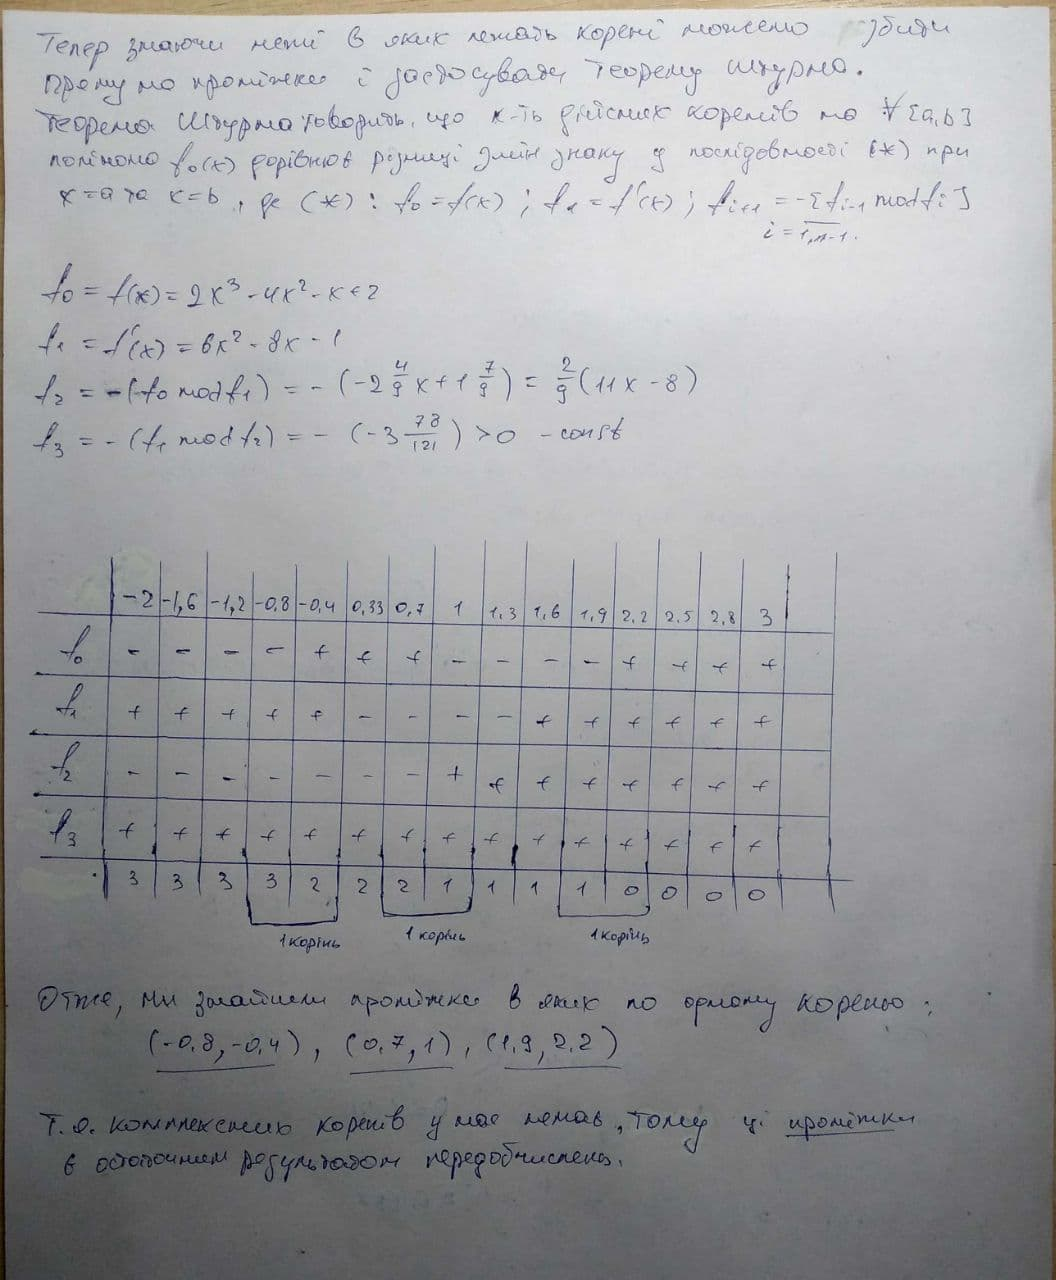 Тепер знаючи межі в яких лежать корені можемо збити
пряму на проміжки і застосувати теорему Штурма.
Теорема Штурма говорить, що к-ть дійсних коренів на ∀ [a,b]
полінома f₀(x) дорівнює різниці змін знаку у послідовності (*) при
x=a та x=b, де (*): f₀=f(x); f₁=f'(x); fᵢ₊₁ = -[fᵢ₋₁ mod fᵢ]
i = 1,n-1.
f₀ = f(x) = 2x³-4x²-x+2
f₁ = f'(x) = 6x²-8x-1
f₂ = -(f₀ mod f₁) = - (-2 4/9 x + 1 7/9) = 2/9 (11x-8)
f₃ = - (f₁ mod f₂) = - (-3 78/121) >0 - const
-2 -1,6 -1,2 -0,8 -0,4 0,33 0,7 1 1,3 1,6 1,9 2,2 2,5 2,8 3
f₀ - - - - + + + - - - - + + + +
f₁ + + + + + - - - - + + + + + +
f₂ - - - - - - - + + + + + + + +
f₃ + + + + + + + + + + + + + + +
3 3 3 3 2 2 2 1 1 1 1 0 0 0 0
1 корінь 1 корінь 1 корінь
Отже, ми знайшли проміжки в яких по одному кореню:
(-0,8,-0,4), (0,7,1), (1,9,2,2)
Т.я. комплексних коренів у нас немає, тому ці проміжки
є остаточним результатом передобчислень.